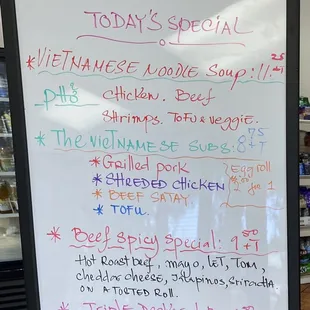 TODAY'S SPECIAL
* VIETNAMESE NOODLE Soup: 11.25 +T
PHO'S CHICKEN. Beef
SHrimps. TOFU & veggie.
* THe VIETNAMESE SUBS: 8 75 +T
* Grilled pork
* SHREDED CHICKEN
* BEEF SATAY
* TOFU.
Eggroll
2 for 1
* Beef spicy special: 9 50 +T
HOT Roast beef, mayo, LET, Tom,
cheddar cheese, Jalapinos, Sriracha
ON A TOSTED Roll.